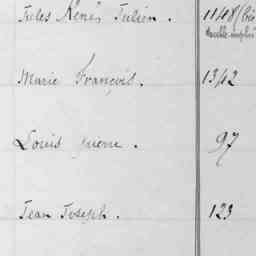 Jules René Julien. 1148/
Marie François. 1342
Louis Pierre. 97
Jean Joseph. 123